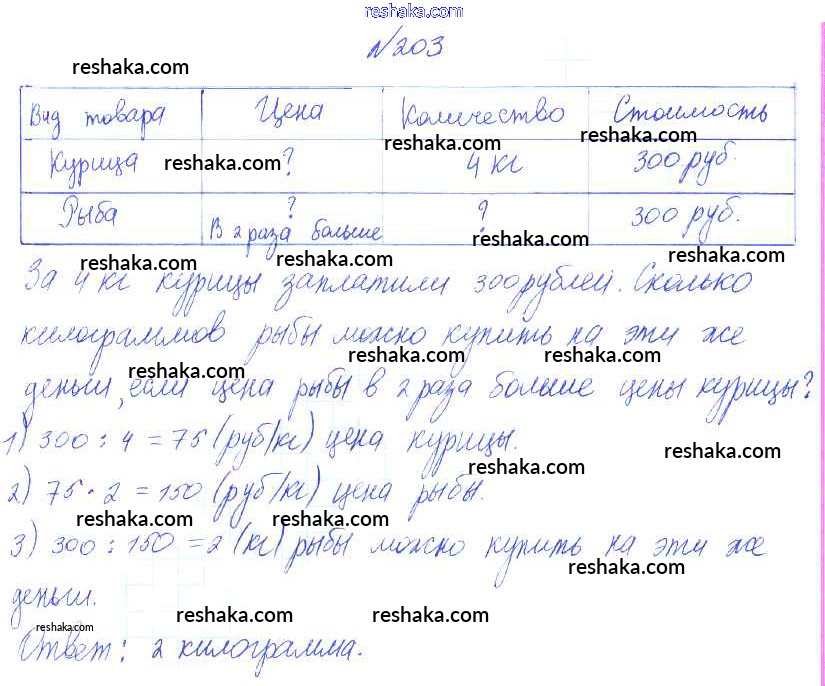 reshaka.com
№203
reshaka.com
Вид товара Цена Количество Стоимость
reshaka.com
Курица reshaka.com ? 4 кг 300 руб.
Рыба ? ? 300 руб.
В 2 раза больше
reshaka.com
reshaka.com reshaka.com reshaka.com
За 4 кг курицы заплатили 300 рублей. Сколько
килограммов рыбы можно купить на эти же
reshaka.com reshaka.com reshaka.com
деньги, если цена рыбы в 2 раза больше цены курицы?
1) 300 : 4 = 75 (руб/кг) цена курицы.
reshaka.com reshaka.com
2) 75 · 2 = 150 (руб/кг) цена рыбы.
reshaka.com reshaka.com
3) 300 : 150 = 2 (кг) рыбы можно купить на эти же
reshaka.com
деньги.
reshaka.com reshaka.com reshaka.com
Ответ: 2 килограмма.